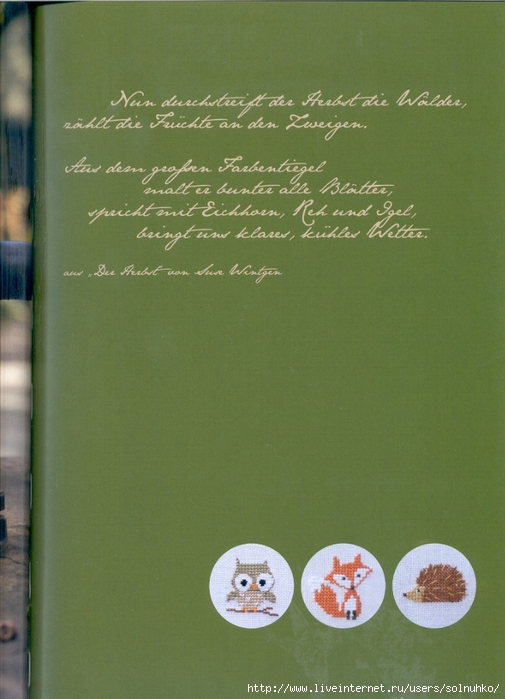 Nun durchstreift der Herbst die Wälder,
zählt die Früchte an den Zweigen.
Aus dem großen Farbentiegel
malt er bunter alle Blätter,
spricht mit Eichhorn, Reh und Igel,
bringt uns klares, kühles Wetter.
aus „Der Herbst" von Suse Wintgen
http://www.liveinternet.ru/users/solnuhko/